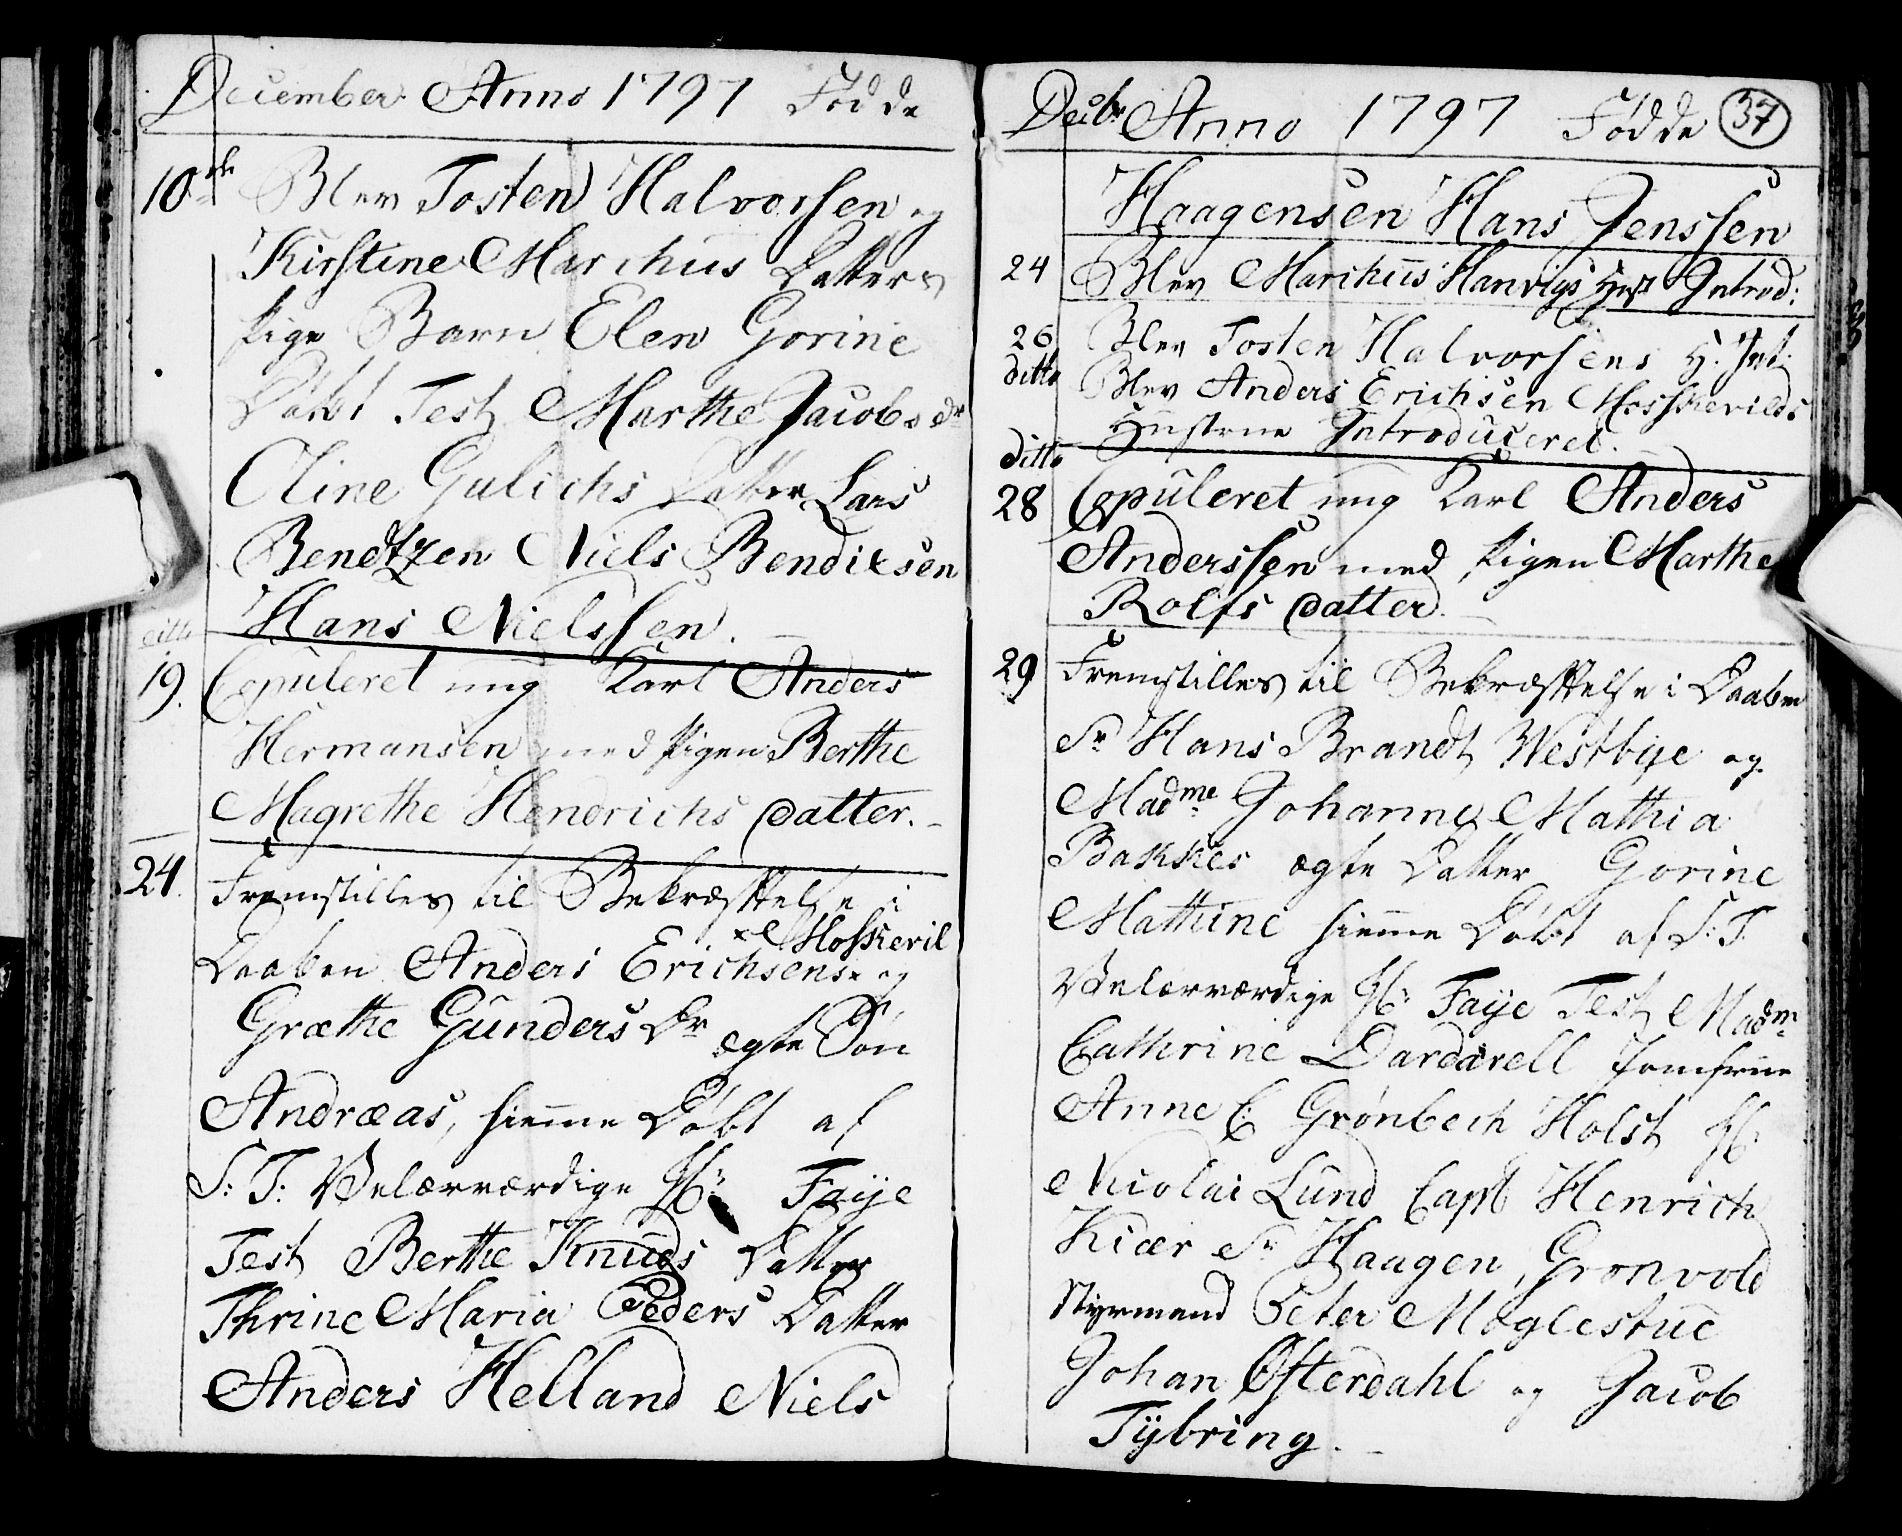 December Anno 1797 Fødde
10de Blev Tosten Halvorsen og
Kirstine Marchus Datters
Pige Barn Elen Gorine
Døbt Test Marthe Jacobs dr
Oline Gulichs Datter Lars
Bendtzen Niels Bendixsen
Hans Nielssen.
ditto
19. Copuleret ung Karl Anders
Hermansen med Pigen Berthe
Magrethe Hendrichs Datter.
24. Fremstilles til Bekræftelse i
x Mosskevil
Daaben Anders Erichsens x og
Græthe Gunders Dr ægte Søn
Andræas, hiemme Døbt af
S: T: Velærværdige Hr: Faÿe
Test Berthe Knuds Datter
Thrine Maria Peders Datter
Anders Helland Niels
Decbr Anno 1797 Fødde 37
Haagensen Hans Jenssen
24 Blev Marchus Hanvigs Hust Introd:
26 Blev Tosten Halvorsens H: Int:
ditto Blev Anders Erichsen Mosskevilds
Hustrue Introduceret.
ditto
28 Copuleret ung Karl Anders
Anderssen med Pigen Marthe
Rolfs Datter.
29 Fremstilles til Bekræftelse i Daaben
Sr Hans Brandt Westbye og
Madme Johanne Mathia
Bakkes ægte Datter Gorine
Mathine hiemme Døbt af S: T.
Velærværdige Hr: Faÿe Test Madme
Cathrine Dardarell Jomfrue
Anne C: Grønbech Holst Hr:
Nicolai Lund Capt Henrich
Kiær Sr Haagen Gronvold
Styrmand Peter Møglestue
Johan Østerdahl og Jacob
Tÿbring.